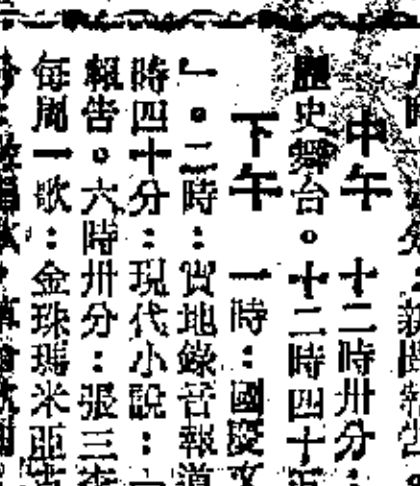 新聞報告
中午　十二時卅分：
歷史舞台。十二時四十
下午　一時：國慶文
」。二時：實地錄音報道
時四十分：現代小說：
報告。六時卅分：張三李
每周一歌：金珠瑪米亞